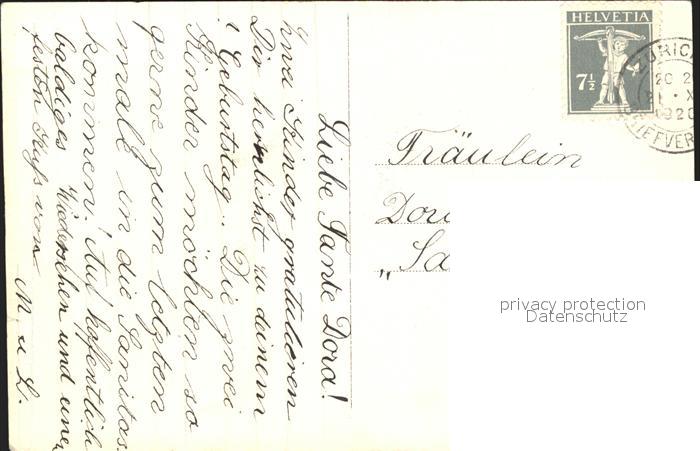 Liebe Tante Dora!
zwei Kinder gratulieren
Dir herzlichst zu deinem
! Geburtstag. Die zwei
Kinder möchten so
gerne zum letzten
male in die Sanitas
kommen! Auf hoffentlich
baldiges Wiedersehen und einen
festen Kuss von
M. u L.
HELVETIA
7½
ZÜRICH
1920
BRIEFVER
Fräulein
Dor
„Sa
privacy protection
Datenschutz